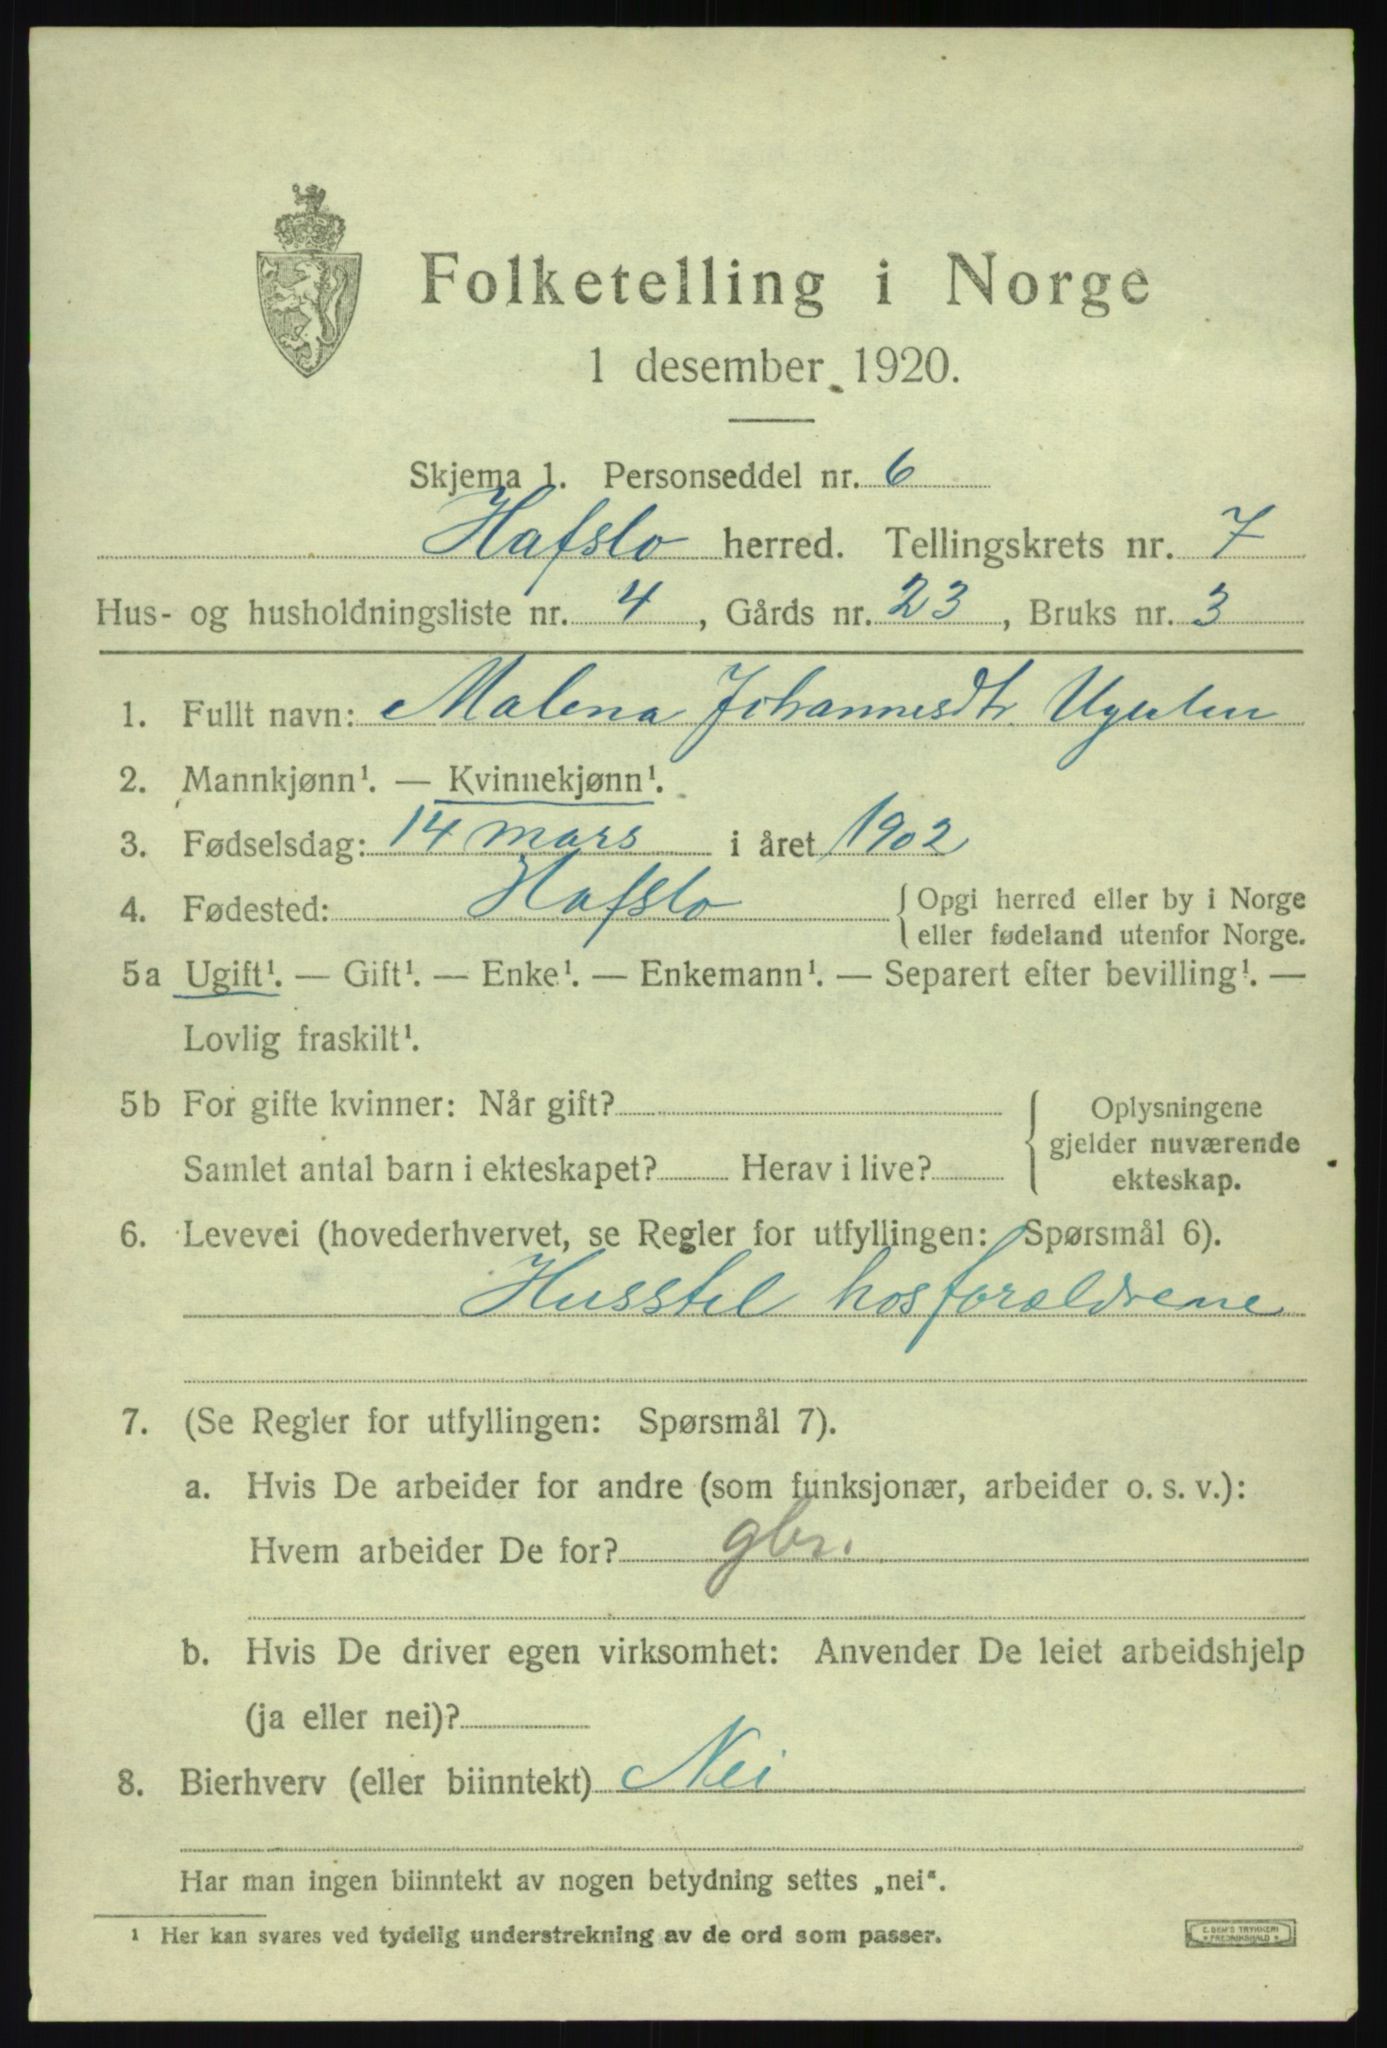 Folketelling i Norge
1 desember 1920.
Skjema 1. Personseddel nr. 6
Hafslo herred. Tellingskrets nr. 7
Hus- og husholdningsliste nr. 4, Gårds nr. 23, Bruks nr. 3
1. Fullt navn: Malena Johannesdtr.
2. Mannkjønn¹. — Kvinnekjønn¹.
3. Fødselsdag: 14 mars i året 1902
4. Fødested: Hafslo { Opgi herred eller by i Norge
eller fødeland utenfor Norge.
5a Ugift¹. — Gift¹. — Enke¹. — Enkemann¹. — Separert efter bevilling¹. —
Lovlig fraskilt¹.
5b For gifte kvinner: Når gift? { Oplysningene
gjelder nuværende
Samlet antal barn i ekteskapet? Herav i live?
ekteskap.
6. Levevei (hovederhvervet, se Regler for utfyllingen: Spørsmål 6).
Husstel hos forældrene
7. (Se Regler for utfyllingen: Spørsmål 7).
a. Hvis De arbeider for andre (som funksjonær, arbeider o. s. v.):
Hvem arbeider De for? gbr.
b. Hvis De driver egen virksomhet: Anvender De leiet arbeidshjelp
(ja eller nei)?
8. Bierhverv (eller biinntekt) Nei
Har man ingen biinntekt av nogen betydning settes „nei".
¹ Her kan svares ved tydelig understrekning av de ord som passer.
E. DEHS TRYKKERI
FREDRIKSHALD